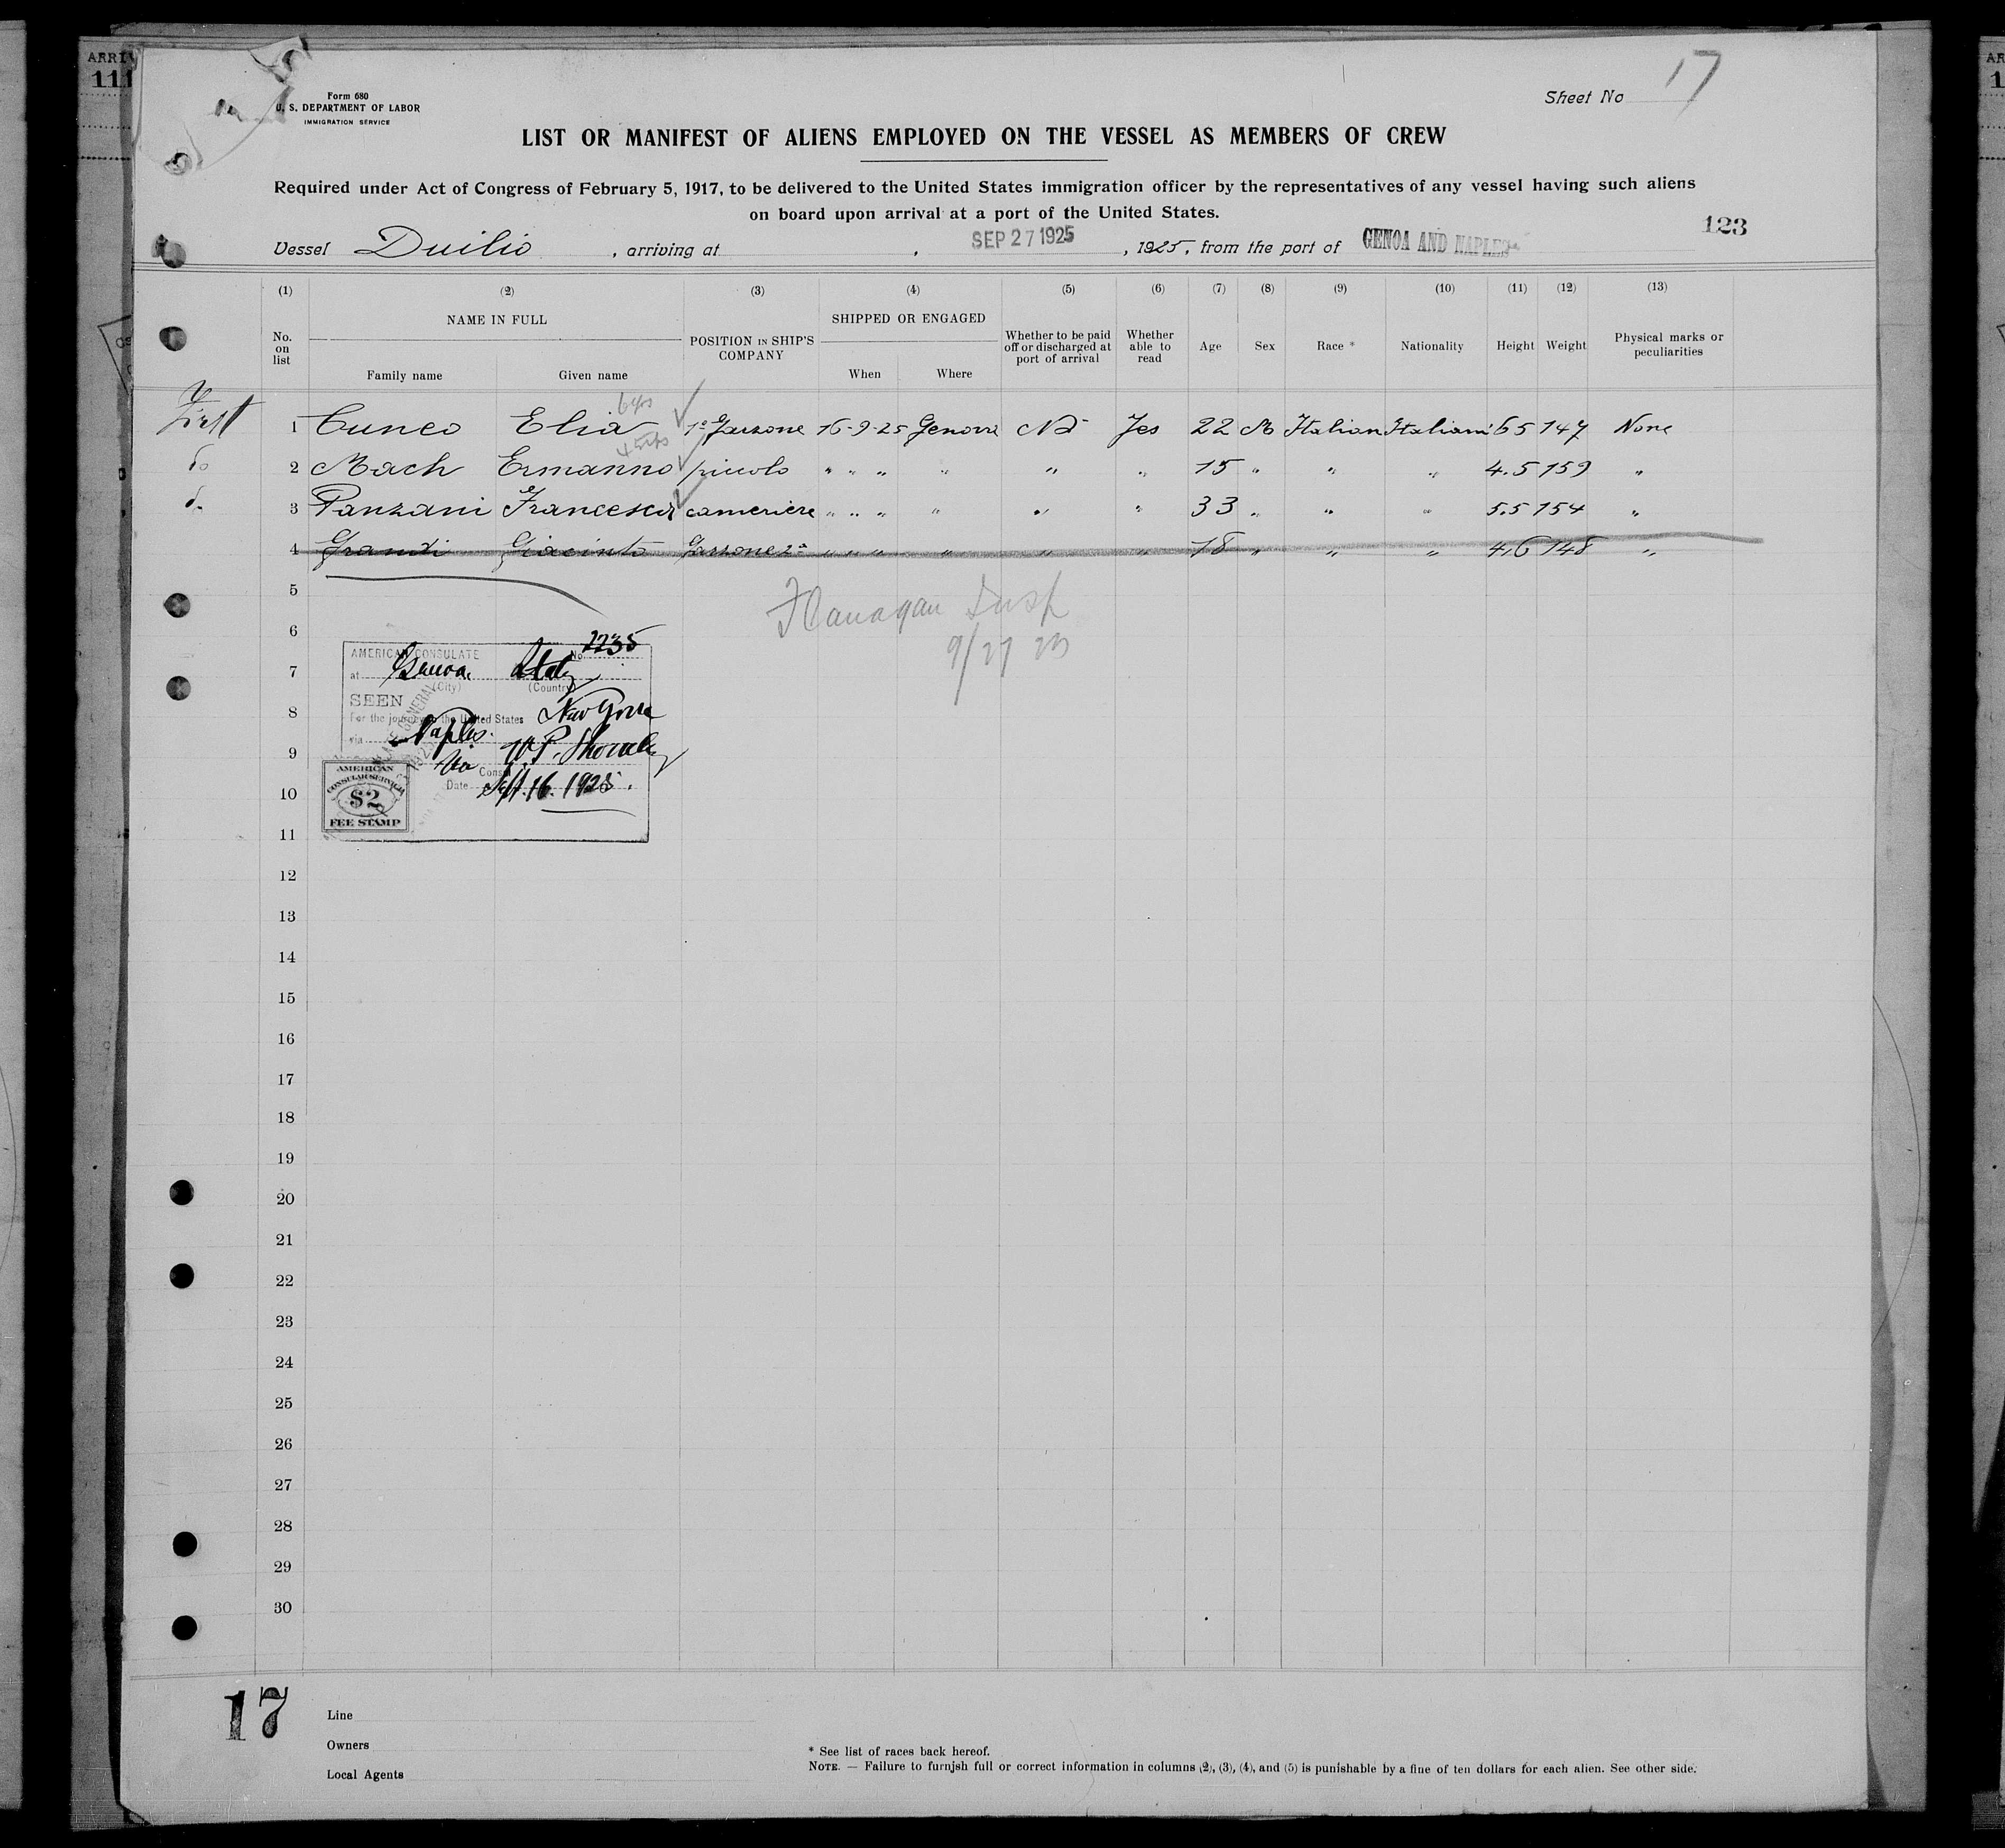 ARRIV
111
Form 680
U. S. DEPARTMENT OF LABOR
IMMIGRATION SERVICE
Sheet No 17
LIST OR MANIFEST OF ALIENS EMPLOYED ON THE VESSEL AS MEMBERS OF CREW
Required under Act of Congress of February 5, 1917, to be delivered to the United States immigration officer by the representatives of any vessel having such aliens
on board upon arrival at a port of the United States.
123
Vessel Duilio , arriving at , SEP 27 1925 , 1925, from the port of GENOA AND NAPLES
(1) (2) (3) (4) (5) (6) (7) (8) (9) (10) (11) (12) (13)
No. on list NAME IN FULL Family name Given name POSITION IN SHIP'S COMPANY SHIPPED OR ENGAGED When Where Whether to be paid off or discharged at port of arrival Whether able to read Age Sex Race * Nationality Height Weight Physical marks or peculiarities
6 yrs
First 1 Cuneo Elia 1° Garzone 16-9-25 Genova No Yes 22 M Italian Italian 65 147 None
do 2 Mach Ermanno piccolo " " " " " " 15 " " " 4.5 159 "
do 3 Panzani Francesco cameriere " " " " " " 33 " " " 5.5 154 "
4 Grandi Giacinto Garzone 2a " " " " " " 18 " " " 4.6 148 "
5
Flanagan Insp
6
9/27
AMERICAN CONSULATE No. 2235
7
at Genoa, Italy
(City) (Country)
SEEN
8
For the journey to the United States New York
via Naples.
9
Consul
Date Sept. 16. 1925.
AMERICAN
CONSULAR SERVICE
$2
FEE STAMP
10
11
12
13
14
15
16
17
18
19
20
21
22
23
24
25
26
27
28
29
30
17
Line
Owners
Local Agents
* See list of races back hereof.
NOTE. — Failure to furnish full or correct information in columns (2), (3), (4), and (5) is punishable by a fine of ten dollars for each alien. See other side.